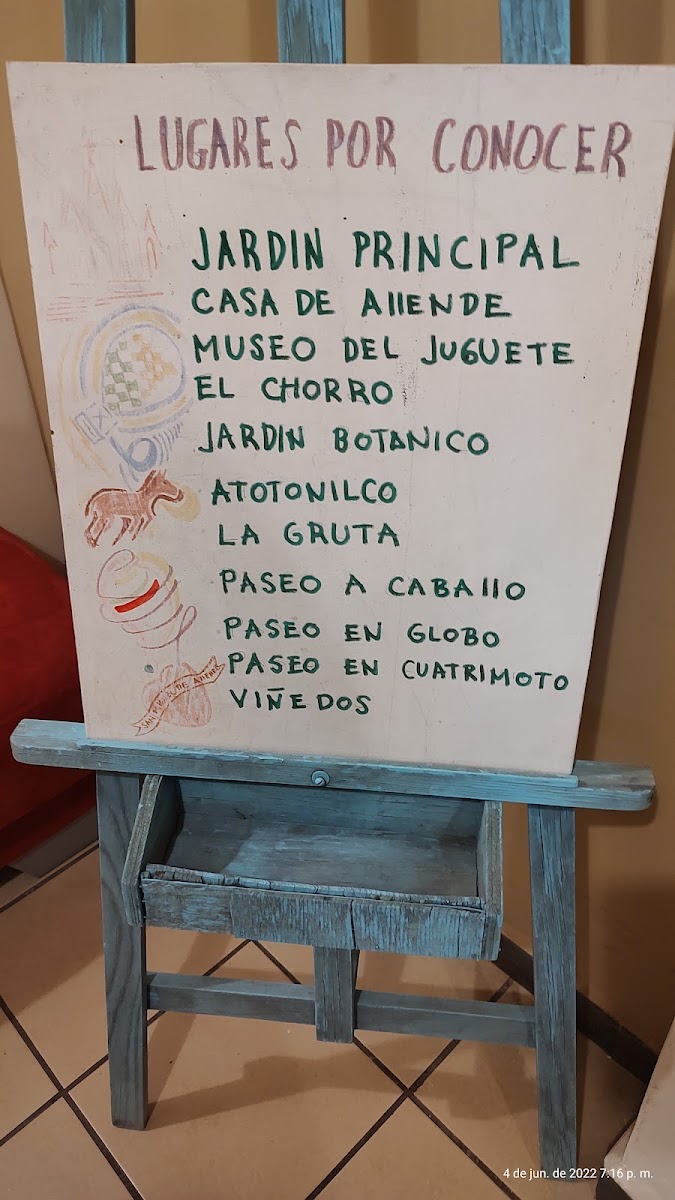 LUGARES POR CONOCER
JARDIN PRINCIPAL
CASA DE AllENDE
MUSEO DEL JUGUETE
EL CHORRO
JARDIN BOTANICO
ATOTONILCO
LA GRUTA
PASEO A CABAllO
PASEO EN GLOBO
PASEO EN CUATRIMOTO
VIÑEDOS
SAN MIGUEL DE ALLENDE
4 de jun. de 2022 7:16 p. m.